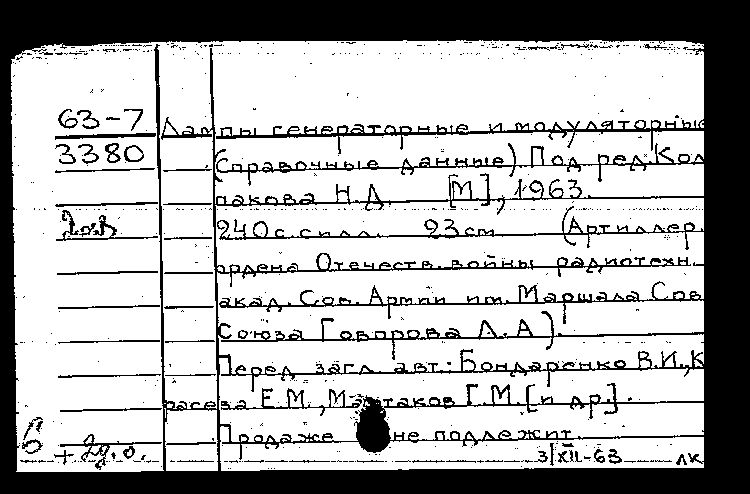 63-7 Лампы генераторные и модуляторные
3380 (Справочные данные) Под ред. Кол
пакова Н.Д. [М], 1963.
240 с. с илл. 23 см (Артиллер.
ордена Отечеств. войны радиотехн.
акад. Сов. Армии им. Маршала Сов
Союза Говорова Л.А).
Перед загл. авт.: Бондаренко В.И., К
расева Е.М., Мартаков Г.М. [и др].
Продаже не подлежит.
б + 2д.о. 3/XII-63 ЛК